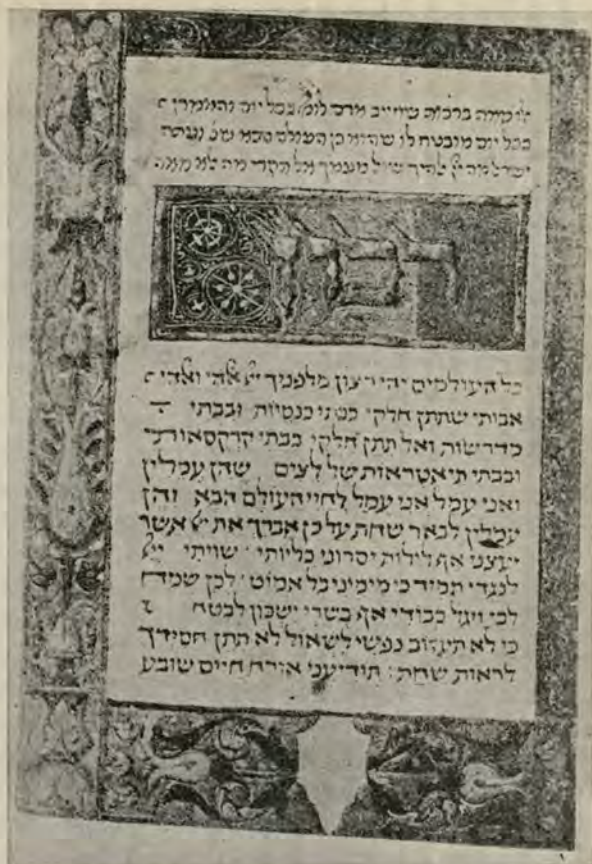 מאה ברכות שחייב אדם לומר בכל יום והאומרן
בכל יום מובטח לו שהוא בן העולם הבא שנ ועתה
ישראל מה יי אלהיך שואל מעמך אל תקרי מה אלא מאה
כל העולמים יהי רצון מלפניך יי אלהי ואלהי
אבותי שתתן חלקי בבתי כנסיות ובבתי
מדרשות ואל תתן חלקי בבתי קרקסאות
ובבתי תיאטראות של לצים שהן עמלין
ואני עמל אני עמל לחיי העולם הבא והן
עמלין לבאר שחת על כן אברך את יי אשר
יעצני אף לילות יסרוני כליותי׃ שויתי יי
לנגדי תמיד כי מימיני בל אמוט׃ לכן שמח
לבי ויגל כבודי אף בשרי ישכון לבטח
כי לא תעזוב נפשי לשאול לא תתן חסידך
לראות שחת׃ תודיעני אורח חיים שובע